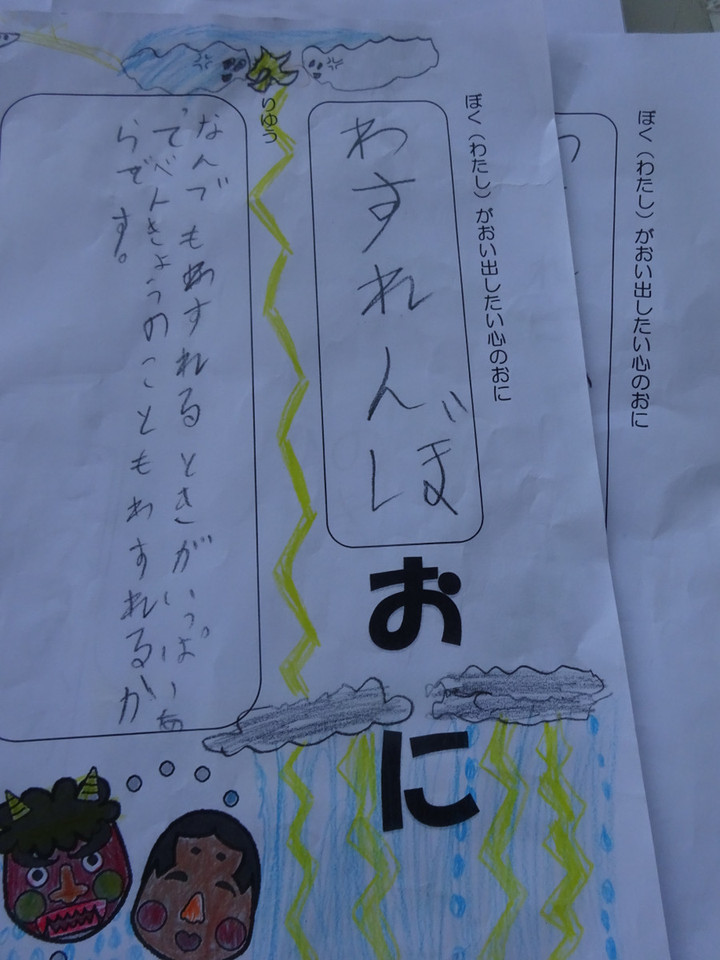 ぼく(わたし)がおい出したい心のおに
ぼく(わたし)がおい出したい心のおに
わすれんぼ
おに
りゆう
なんでもわすれるときがいっぱいあ
ってべんきょうのこともわすれるか
らです。